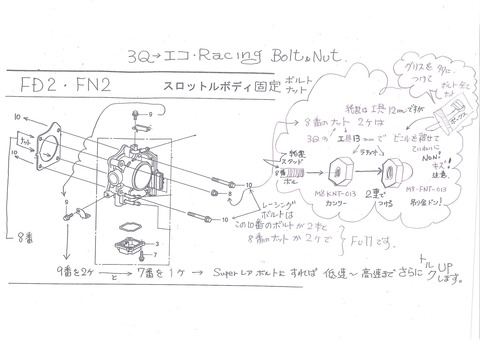 3Q→エコ・Racing Bolt&Nut.
FD2・FN2
スロットルボディ固定
ボルト
ナット
グリスを少々
つけて
純正は工具12mmですが
8番のナット2ケは
3Qの工具13mmで
ビニールを被せて
ていねいに
Non!
キズ!
注意
純正
スタッド
8番
ボルト
M8KNT-013
カンケー
2重で
つける
M8-FNT-013
レーシング
ボルトは
この10番のボルトが2本と
8番のナットが2ケで
Fullです。
10
10
10
ナット
9
9
8
10
10
3
7
8番
9番を2ケと7番を1ケ→Superレアボルトにすれば 低速~高速までさらにトルクUP
します。